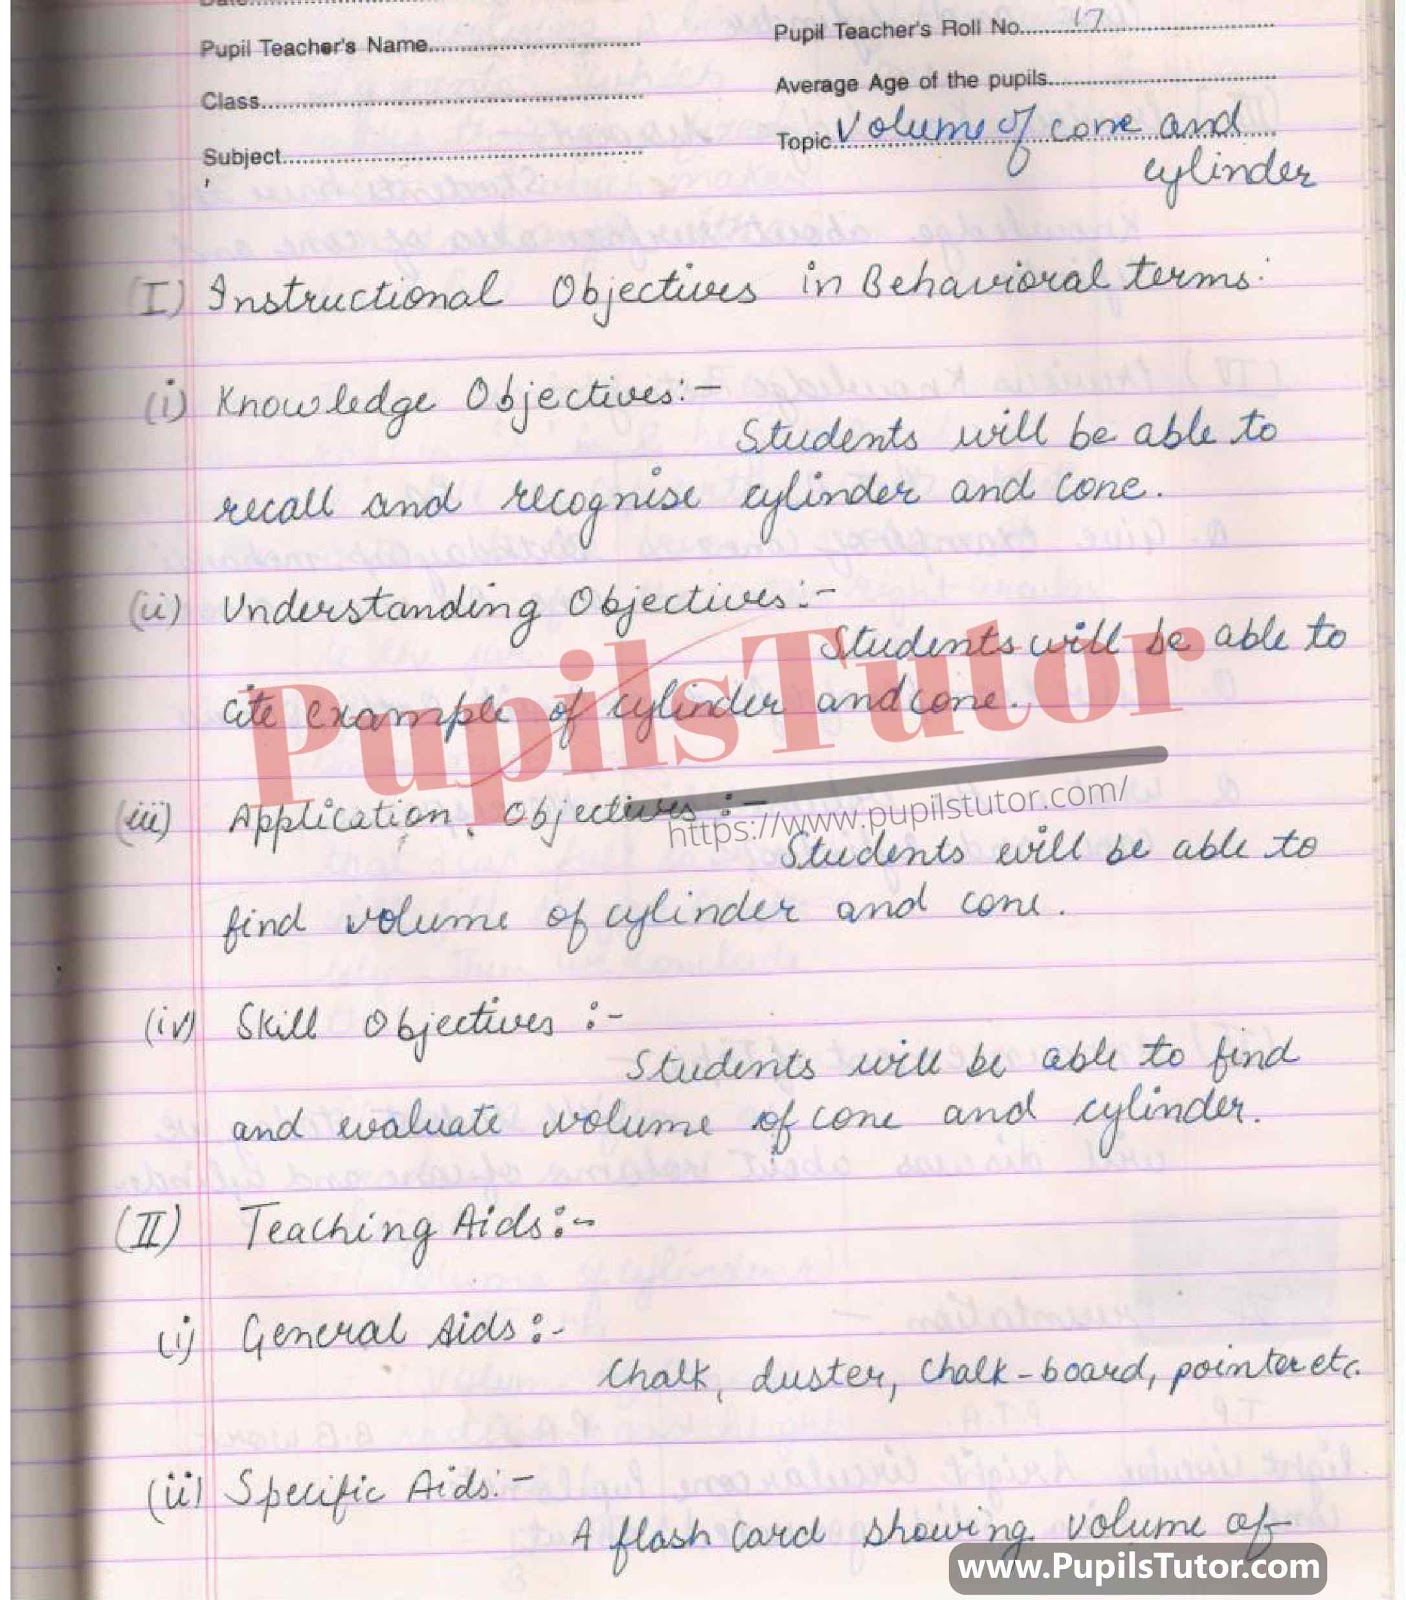 Date
Pupil Teacher's Name
Pupil Teacher's Roll No. 17
Class
Average Age of the pupils
Subject
Topic Volume of cone and
cylinder
(I) Instructional Objectives in Behavioral terms:
(i) Knowledge Objectives:-
Students will be able to
recall and recognise cylinder and cone.
(ii) Understanding Objectives:-
Students will be able to
cite example of cylinder and cone.
(iii) Application Objectives :-
Students will be able to
find volume of cylinder and cone.
(iv) Skill Objectives :-
Students will be able to find
and evaluate volume of cone and cylinder.
(II) Teaching Aids:-
(i) General Aids:-
Chalk, duster, chalk-board, pointer etc.
(ii) Specific Aids:-
A flash card showing volume of
PupilsTutor
https://www.pupilstutor.com/
www.PupilsTutor.com